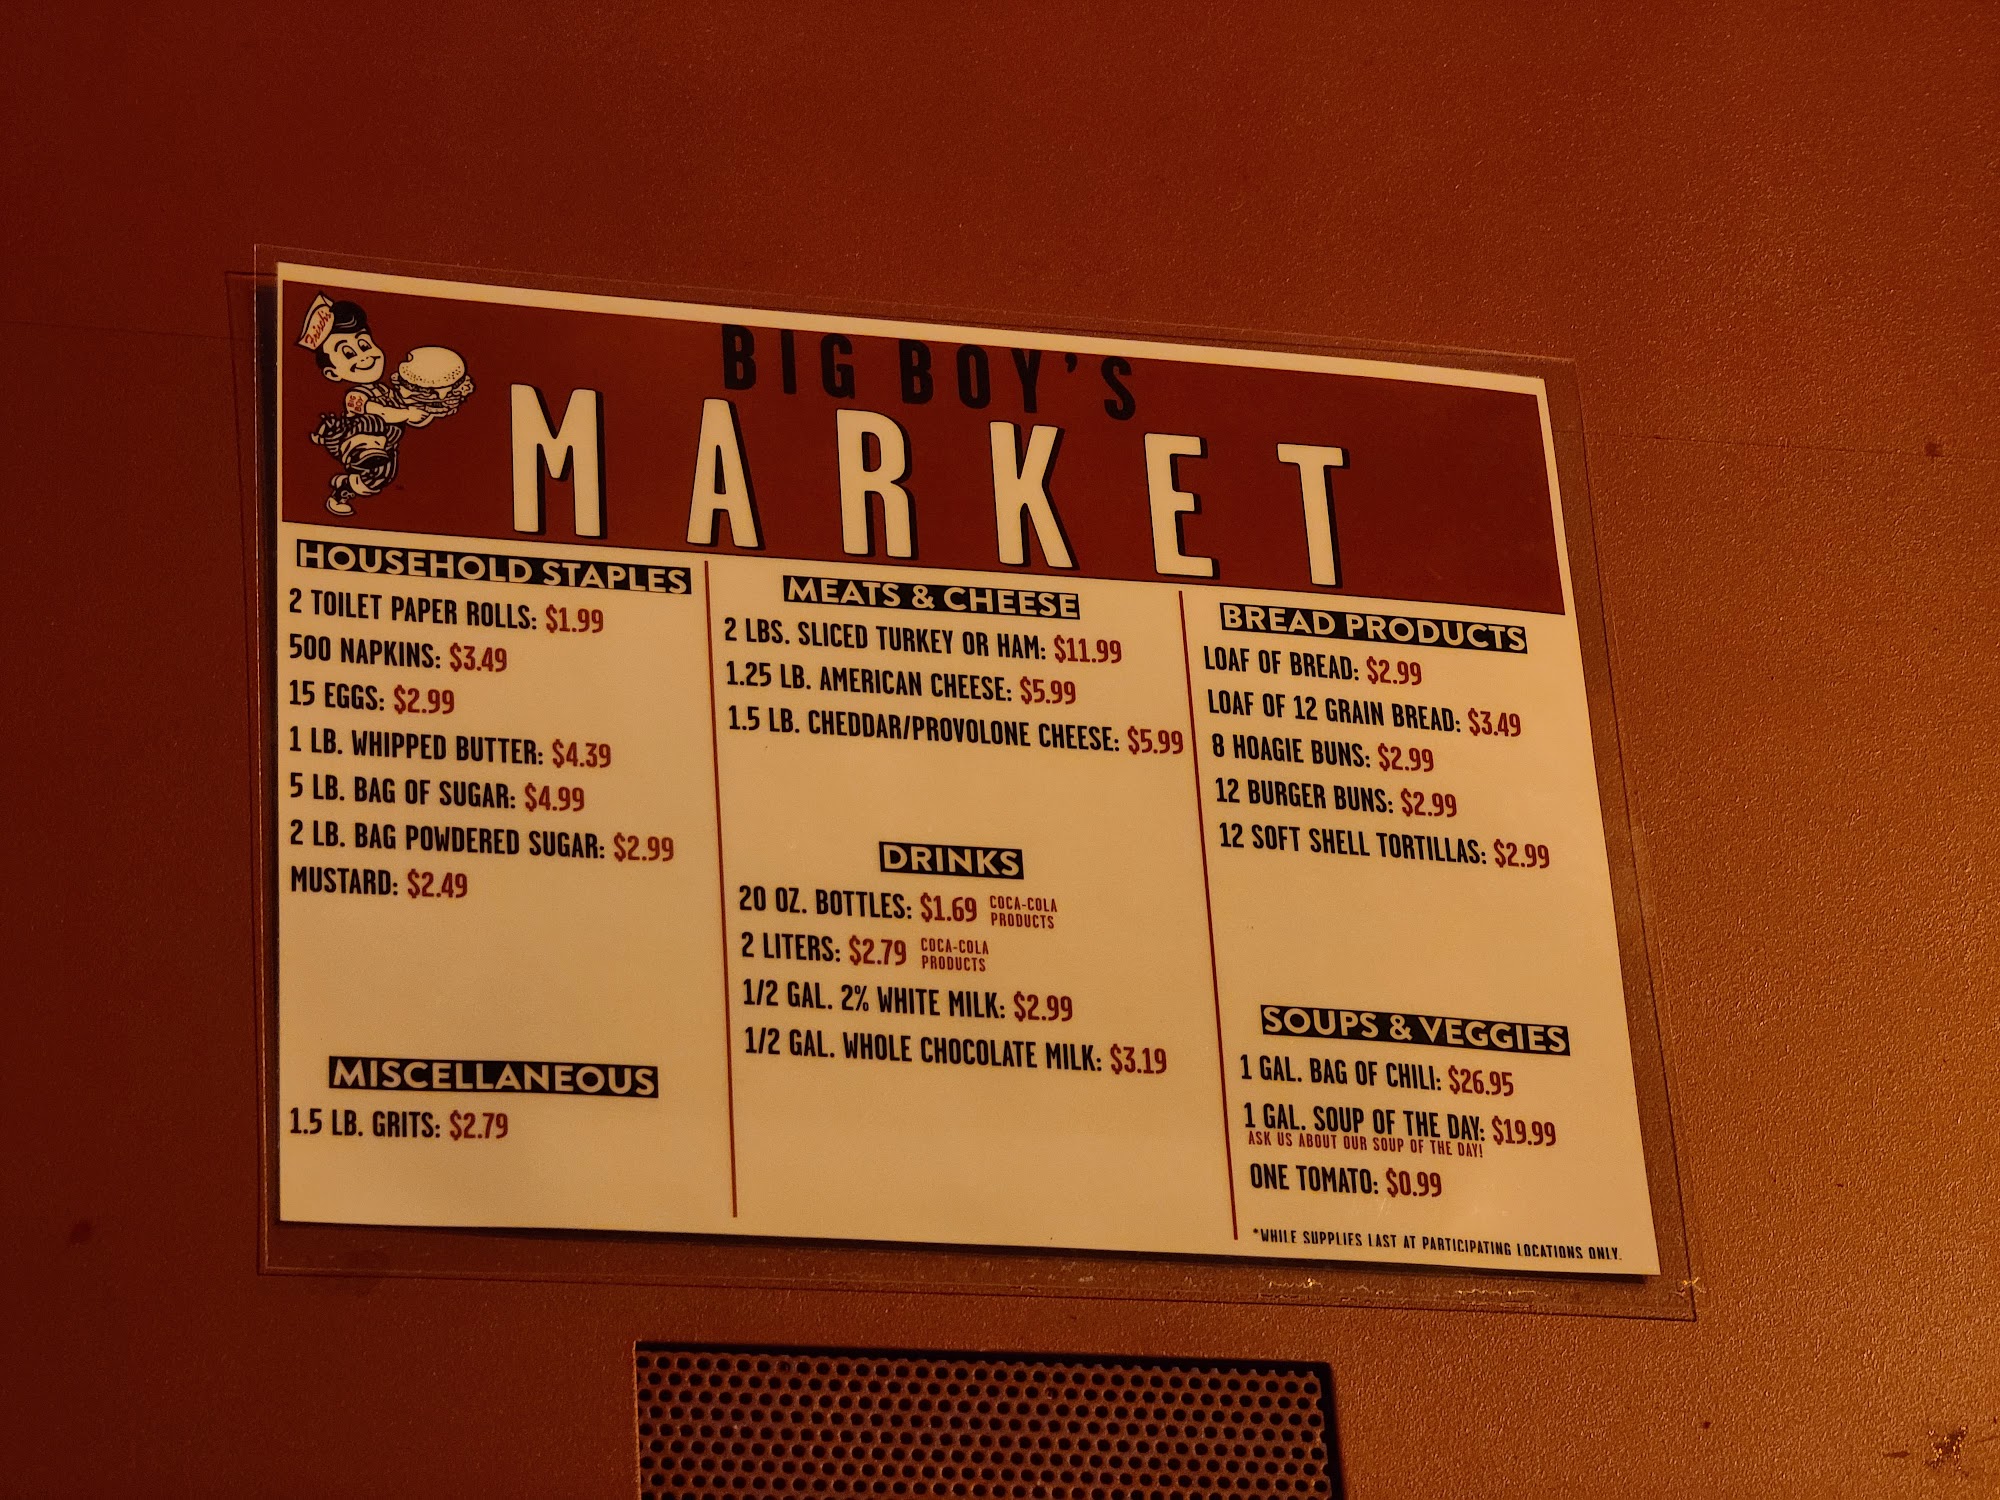 Frisch's
BIG BOY
BIG BOY'S
MARKET
HOUSEHOLD STAPLES
2 TOILET PAPER ROLLS: $1.99
500 NAPKINS: $3.49
15 EGGS: $2.99
1 LB. WHIPPED BUTTER: $4.39
5 LB. BAG OF SUGAR: $4.99
2 LB. BAG POWDERED SUGAR: $2.99
MUSTARD: $2.49
MISCELLANEOUS
1.5 LB. GRITS: $2.79
MEATS & CHEESE
2 LBS. SLICED TURKEY OR HAM: $11.99
1.25 LB. AMERICAN CHEESE: $5.99
1.5 LB. CHEDDAR/PROVOLONE CHEESE: $5.99
DRINKS
20 OZ. BOTTLES: $1.69 COCA-COLA
PRODUCTS
2 LITERS: $2.79 COCA-COLA
PRODUCTS
1/2 GAL. 2% WHITE MILK: $2.99
1/2 GAL. WHOLE CHOCOLATE MILK: $3.19
BREAD PRODUCTS
LOAF OF BREAD: $2.99
LOAF OF 12 GRAIN BREAD: $3.49
8 HOAGIE BUNS: $2.99
12 BURGER BUNS: $2.99
12 SOFT SHELL TORTILLAS: $2.99
SOUPS & VEGGIES
1 GAL. BAG OF CHILI: $26.95
1 GAL. SOUP OF THE DAY: $19.99
ASK US ABOUT OUR SOUP OF THE DAY!
ONE TOMATO: $0.99
*WHILE SUPPLIES LAST AT PARTICIPATING LOCATIONS ONLY.